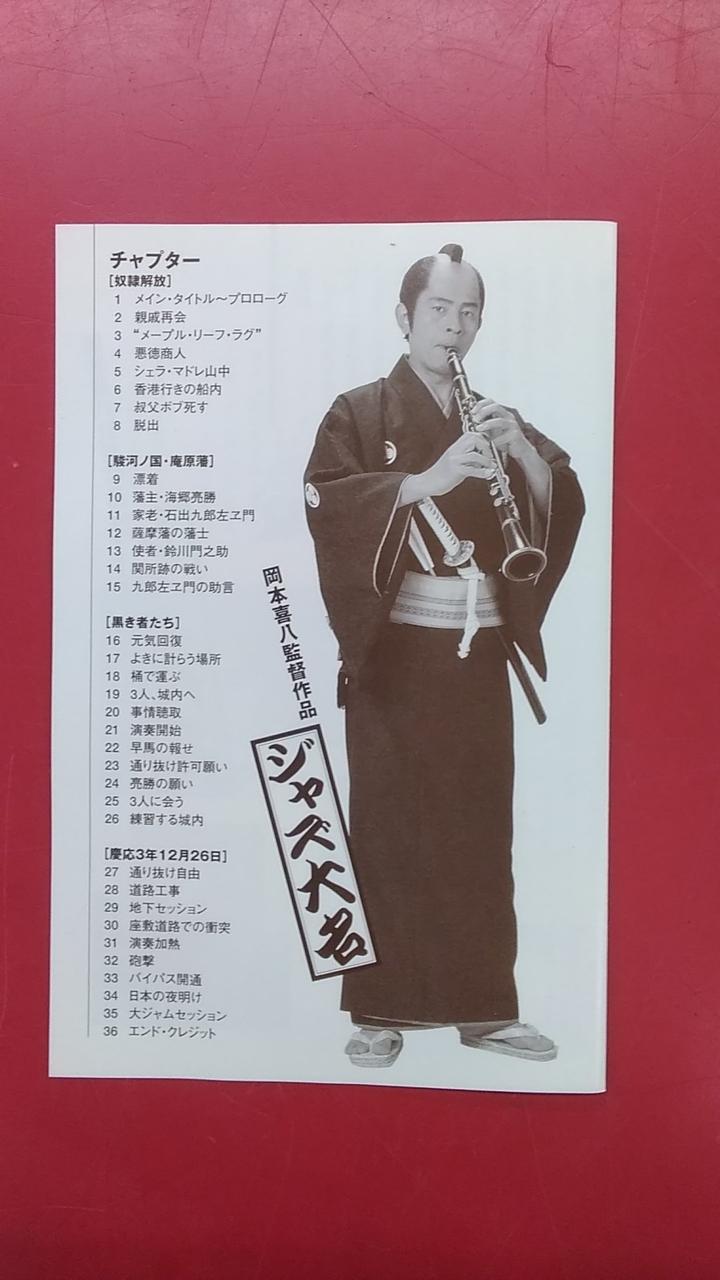 チャプター
[奴隷解放]
1 メイン・タイトル〜プロローグ
2 親戚再会
3 “メープル・リーフ・ラグ”
4 悪徳商人
5 シェラ・マドレ山中
6 香港行きの船内
7 叔父ボブ死す
8 脱出
[駿河ノ国・庵原藩]
9 漂着
10 藩主・海郷亮勝
11 家老・石出九郎左ヱ門
12 薩摩藩の藩士
13 使者・鈴川門之助
14 関所跡の戦い
15 九郎左ヱ門の助言
[黒き者たち]
16 元気回復
17 よきに計らう場所
18 桶で運ぶ
19 3人、城内へ
20 事情聴取
21 演奏開始
22 早馬の報せ
23 通り抜け許可願い
24 亮勝の願い
25 3人に会う
26 練習する城内
[慶応3年12月26日]
27 通り抜け自由
28 道路工事
29 地下セッション
30 座敷道路での衝突
31 演奏加熱
32 砲撃
33 バイパス開通
34 日本の夜明け
35 大ジャムセッション
36 エンド・クレジット
岡本喜八監督作品
ジャズ大名